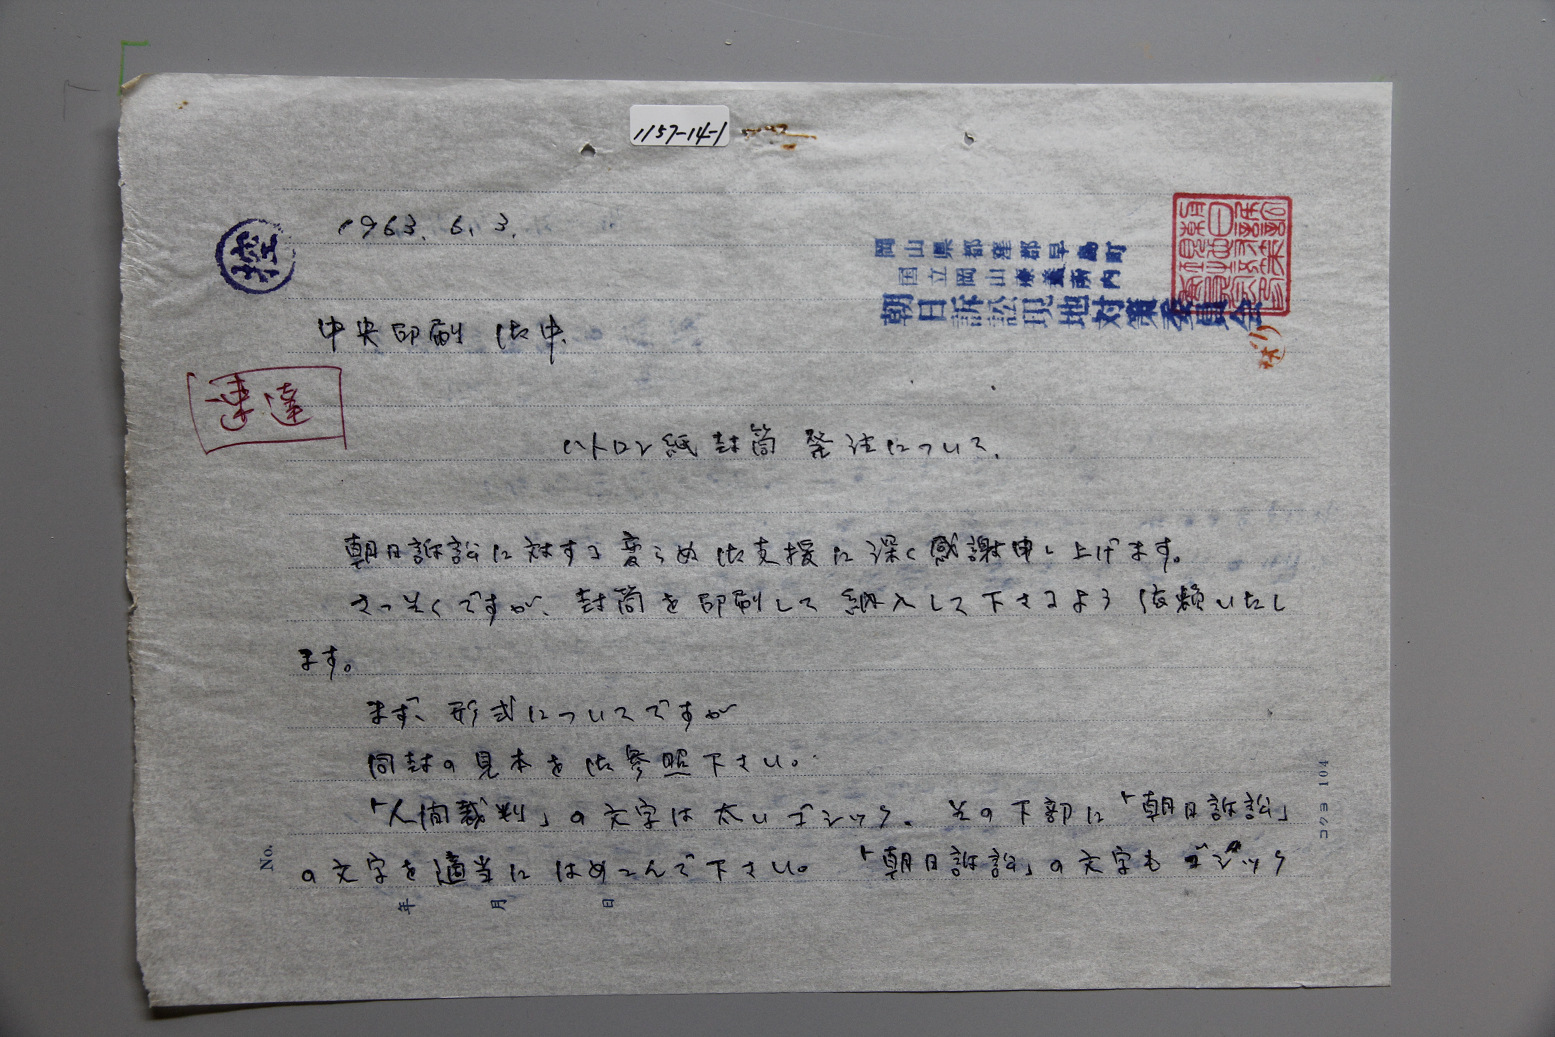 1157-14-1
控
1963. 6. 3.
岡山県都窪郡早島町
国立岡山療養所内
朝日訴訟現地対策委員会
中央印刷 御中
速達
ハトロン紙封筒発注について.
朝日訴訟に対する変らぬ御支援に深く感謝申し上げます。
さっそくですが、封筒を印刷して納入して下さるよう依頼いたし
ます。
まず、形式についてですが
同封の見本を御参照下さい。
「人間裁判」の文字は太いゴシック、その下部に「朝日訴訟」
の文字を適当にはめこんで下さい。「朝日訴訟」の文字もゴシック
No.
年 月 日
コクヨ 104